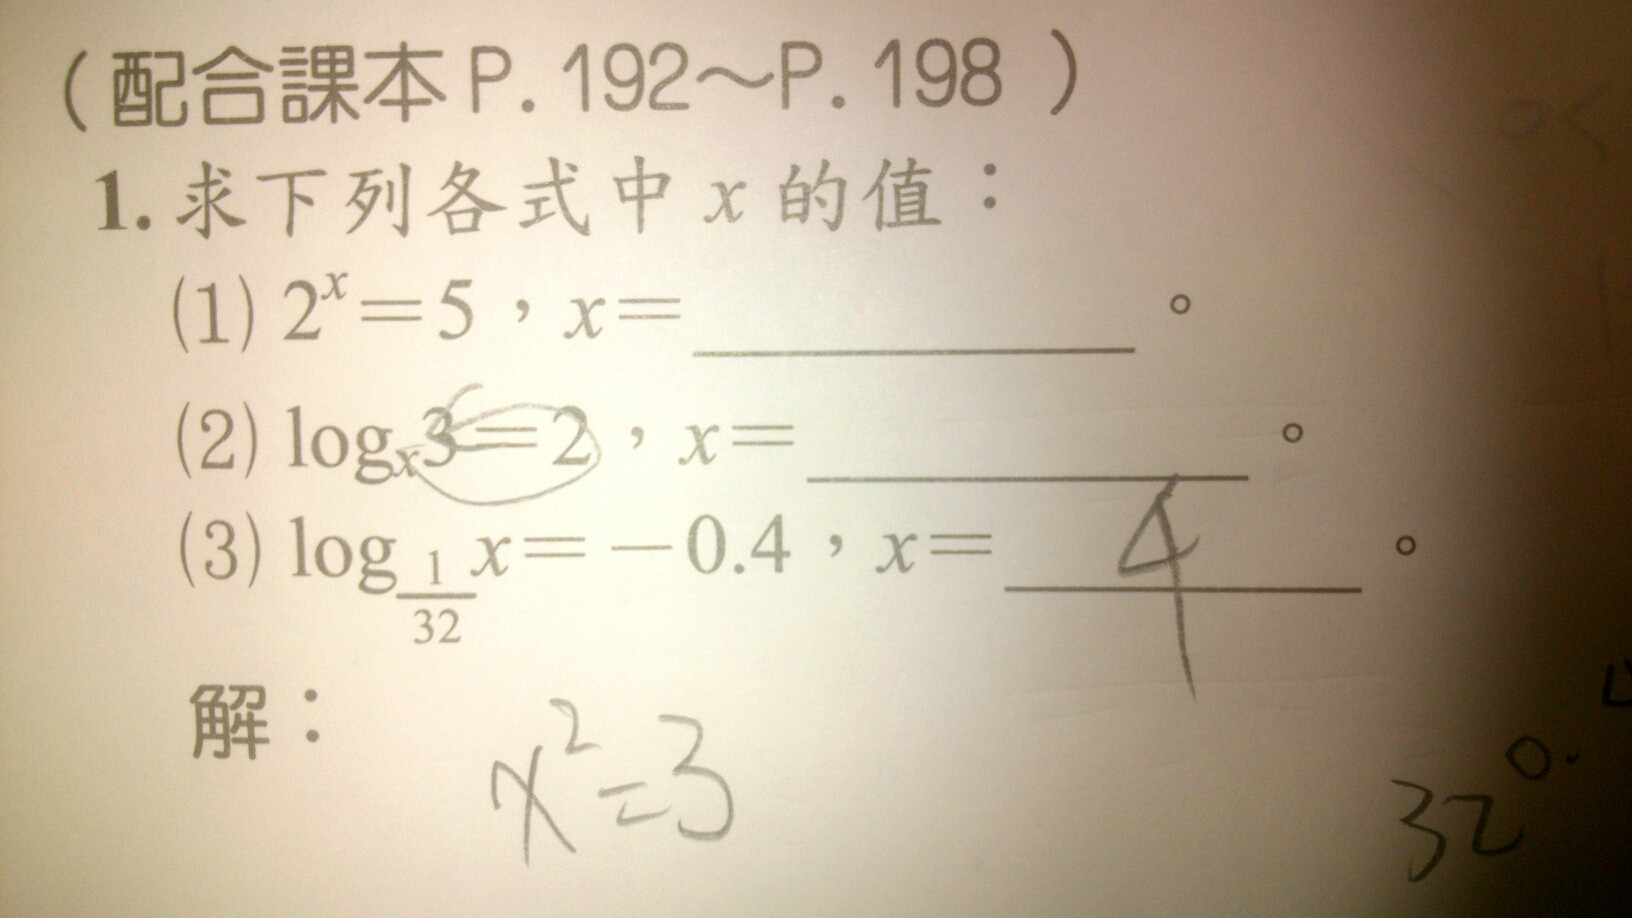 （配合課本P.192～P.198）
1. 求下列各式中 x 的值：
(1) 2^x=5，x=________。
(2) log_x 3=2，x=________。
(3) log_{1/32} x=－0.4，x=4。
解：
x²=3
32^0.